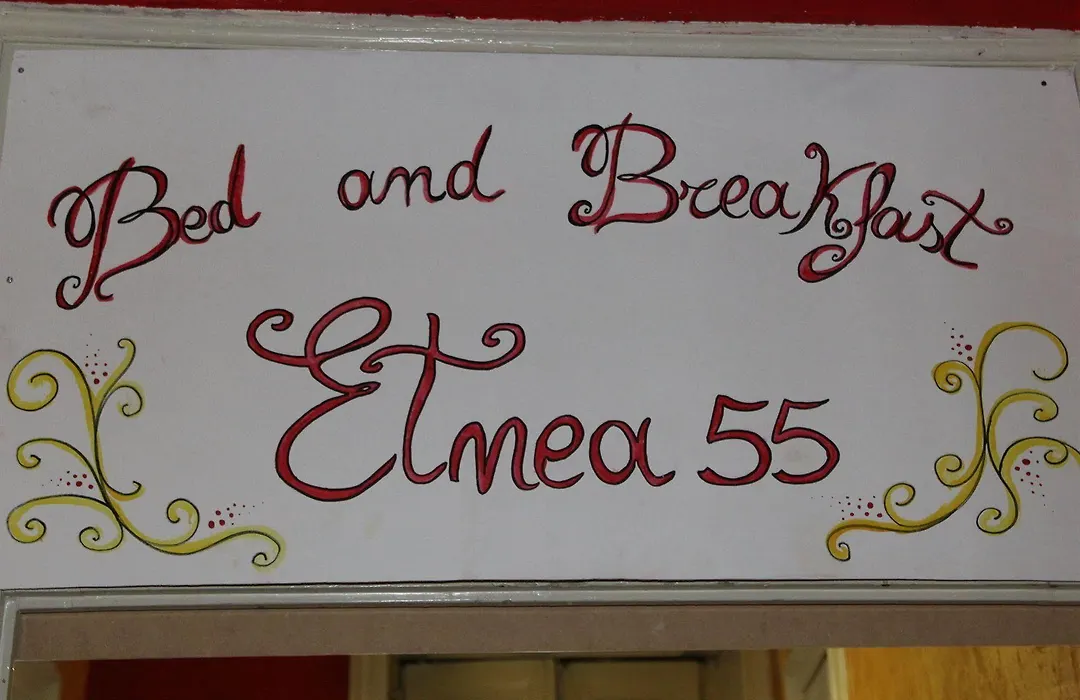 Bed and Breakfast
Etnea 55